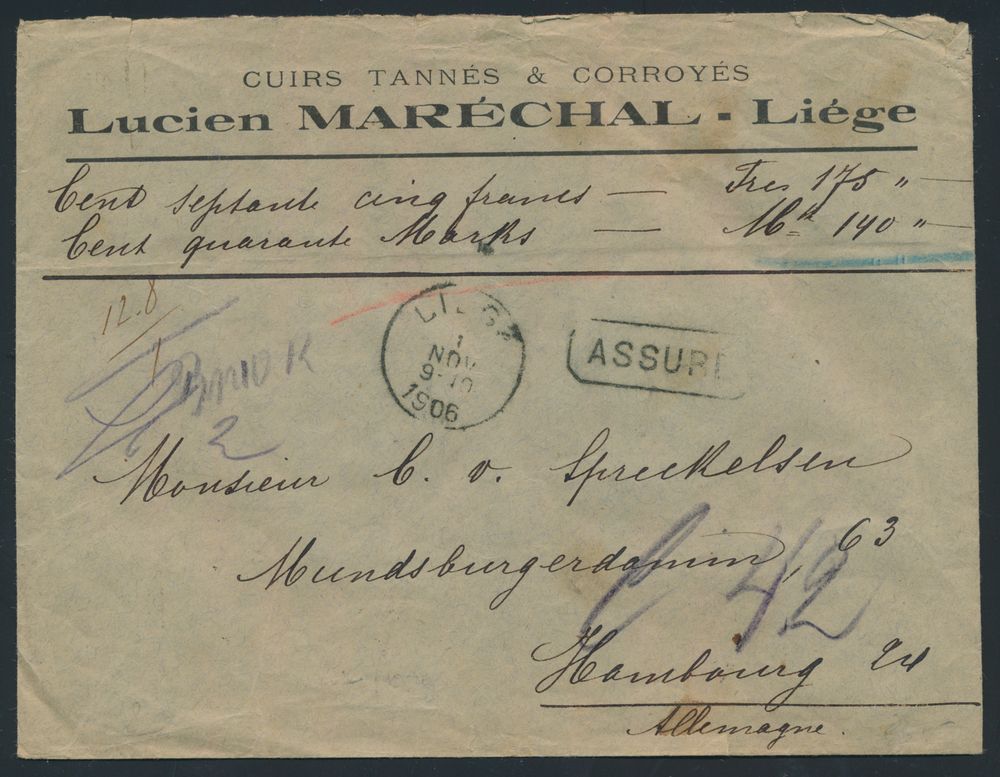 CUIRS TANNÉS & CORROYÉS
Lucien MARÉCHAL - Liége
Cent septante cinq francs — Frcs 175 " —
Cent quarante Marks — Mk 140 " —
12.8
LIEGE
1
NOV
9-10
1906
ASSURÉ
2
Monsieur C. v. Spreckelsen
Mundsburgerdamm, 63
42
Hambourg 24
Allemagne.